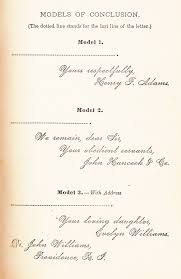 MODELS OF CONCLUSION.
(The dotted line stands for the last line of the letter.)
Model 1.
Yours respectfully,
Henry T. Adams.
Model 2.
We remain, dear Sir,
Your obedient servants,
John Hancock & Co.
Model 3.—With Address
Your loving daughter,
Evelyn Williams.
Dr. John Williams,
Providence, R. I.